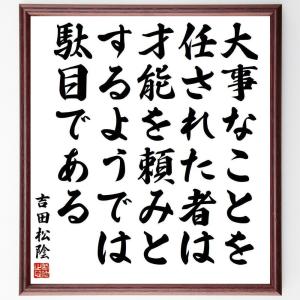 大事なことを
任された者は
才能を頼みと
するようでは
駄目である
吉田松陰